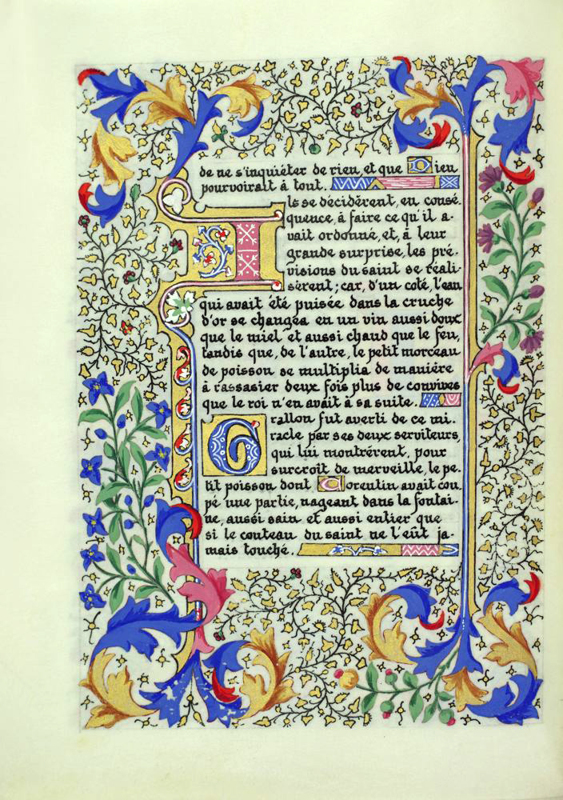 de ne s'inquiéter de rien, et que Dieu
pourvoirait à tout.
Ils se décidèrent, en consé
quence, à faire ce qu'il a-
vait ordonné, et, à leur
grande surprise, les pré-
visions du saint se réali-
sèrent; car, d'un coté, l'eau
qui avait été puisée dans la cruche
d'or se changea en un vin aussi doux
que le miel et aussi chaud que le feu,
tandis que, de l'autre, le petit morceau
de poisson se multiplia de manière
à rassasier deux fois plus de convives
que le roi n'en avait à sa suite.
Grallon fut averti de ce mi-
racle par ses deux serviteurs,
qui lui montrèrent, pour
surcroît de merveille, le pe-
tit poisson dont Corentin avait cou
pé une partie, nageant dans la fontai-
ne, aussi sain et aussi entier que
si le couteau du saint ne l'eût ja-
mais touché.